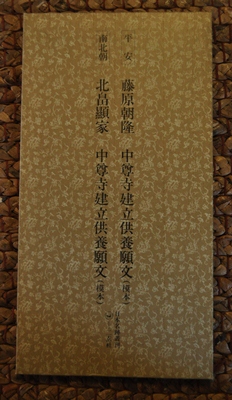 平安　藤原朝隆　中尊寺建立供養願文（模本）
南北朝　北畠顯家　中尊寺建立供養願文（模本）
日本名跡叢刊